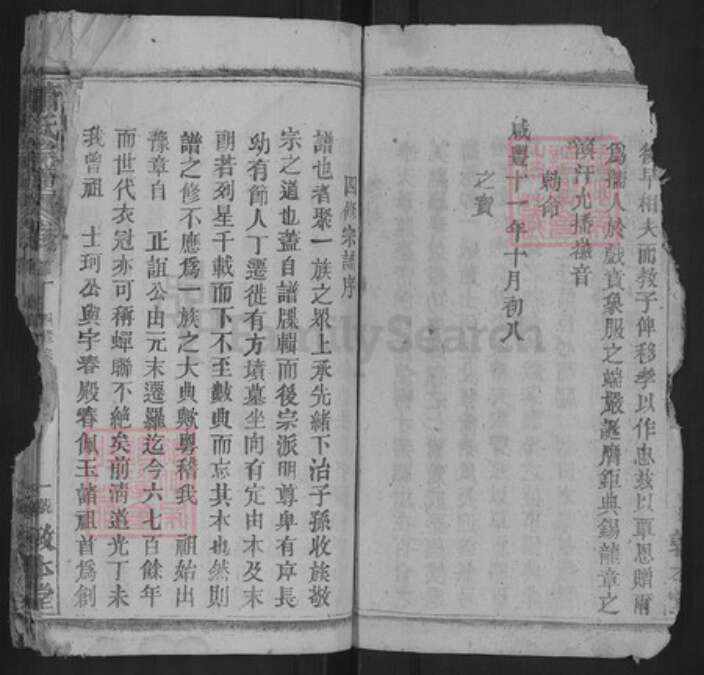 後早相夫而教子俾移孝以作忠兹以覃恩贈爾
爲孺人於戲寶象服之端嚴誕膺鉅典錫龍章之
渙汗允播徽音
勅命
咸豐十一年十月初八
之寶
四修宗譜序
譜也者聚一族之眾上承先緒下治子孫收族敬
宗之道也蓋自譜牒輯而後宗派明尊卑有序長
幼有節人丁遷徙有方墳墓坐向有定由本及末
朗若列星千載而下不至數典而忘其本也然則
譜之修不應爲一族之大典歟粵稽我 祖始出
豫章自 正誼公由元末遷羅迄今六七百餘年
而世代衣冠亦可稱蟬聯不絶矣前淸道光丁未
我曾祖 士珂公與字春殿春佩玉諸祖首爲創
敦本堂
FamilySearch